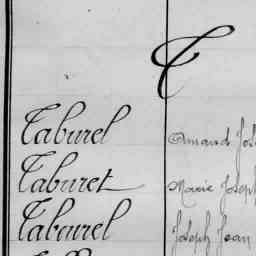 T
Taburel Amand Jos
Taburet Marie Joseph
Taburel Joseph Jean